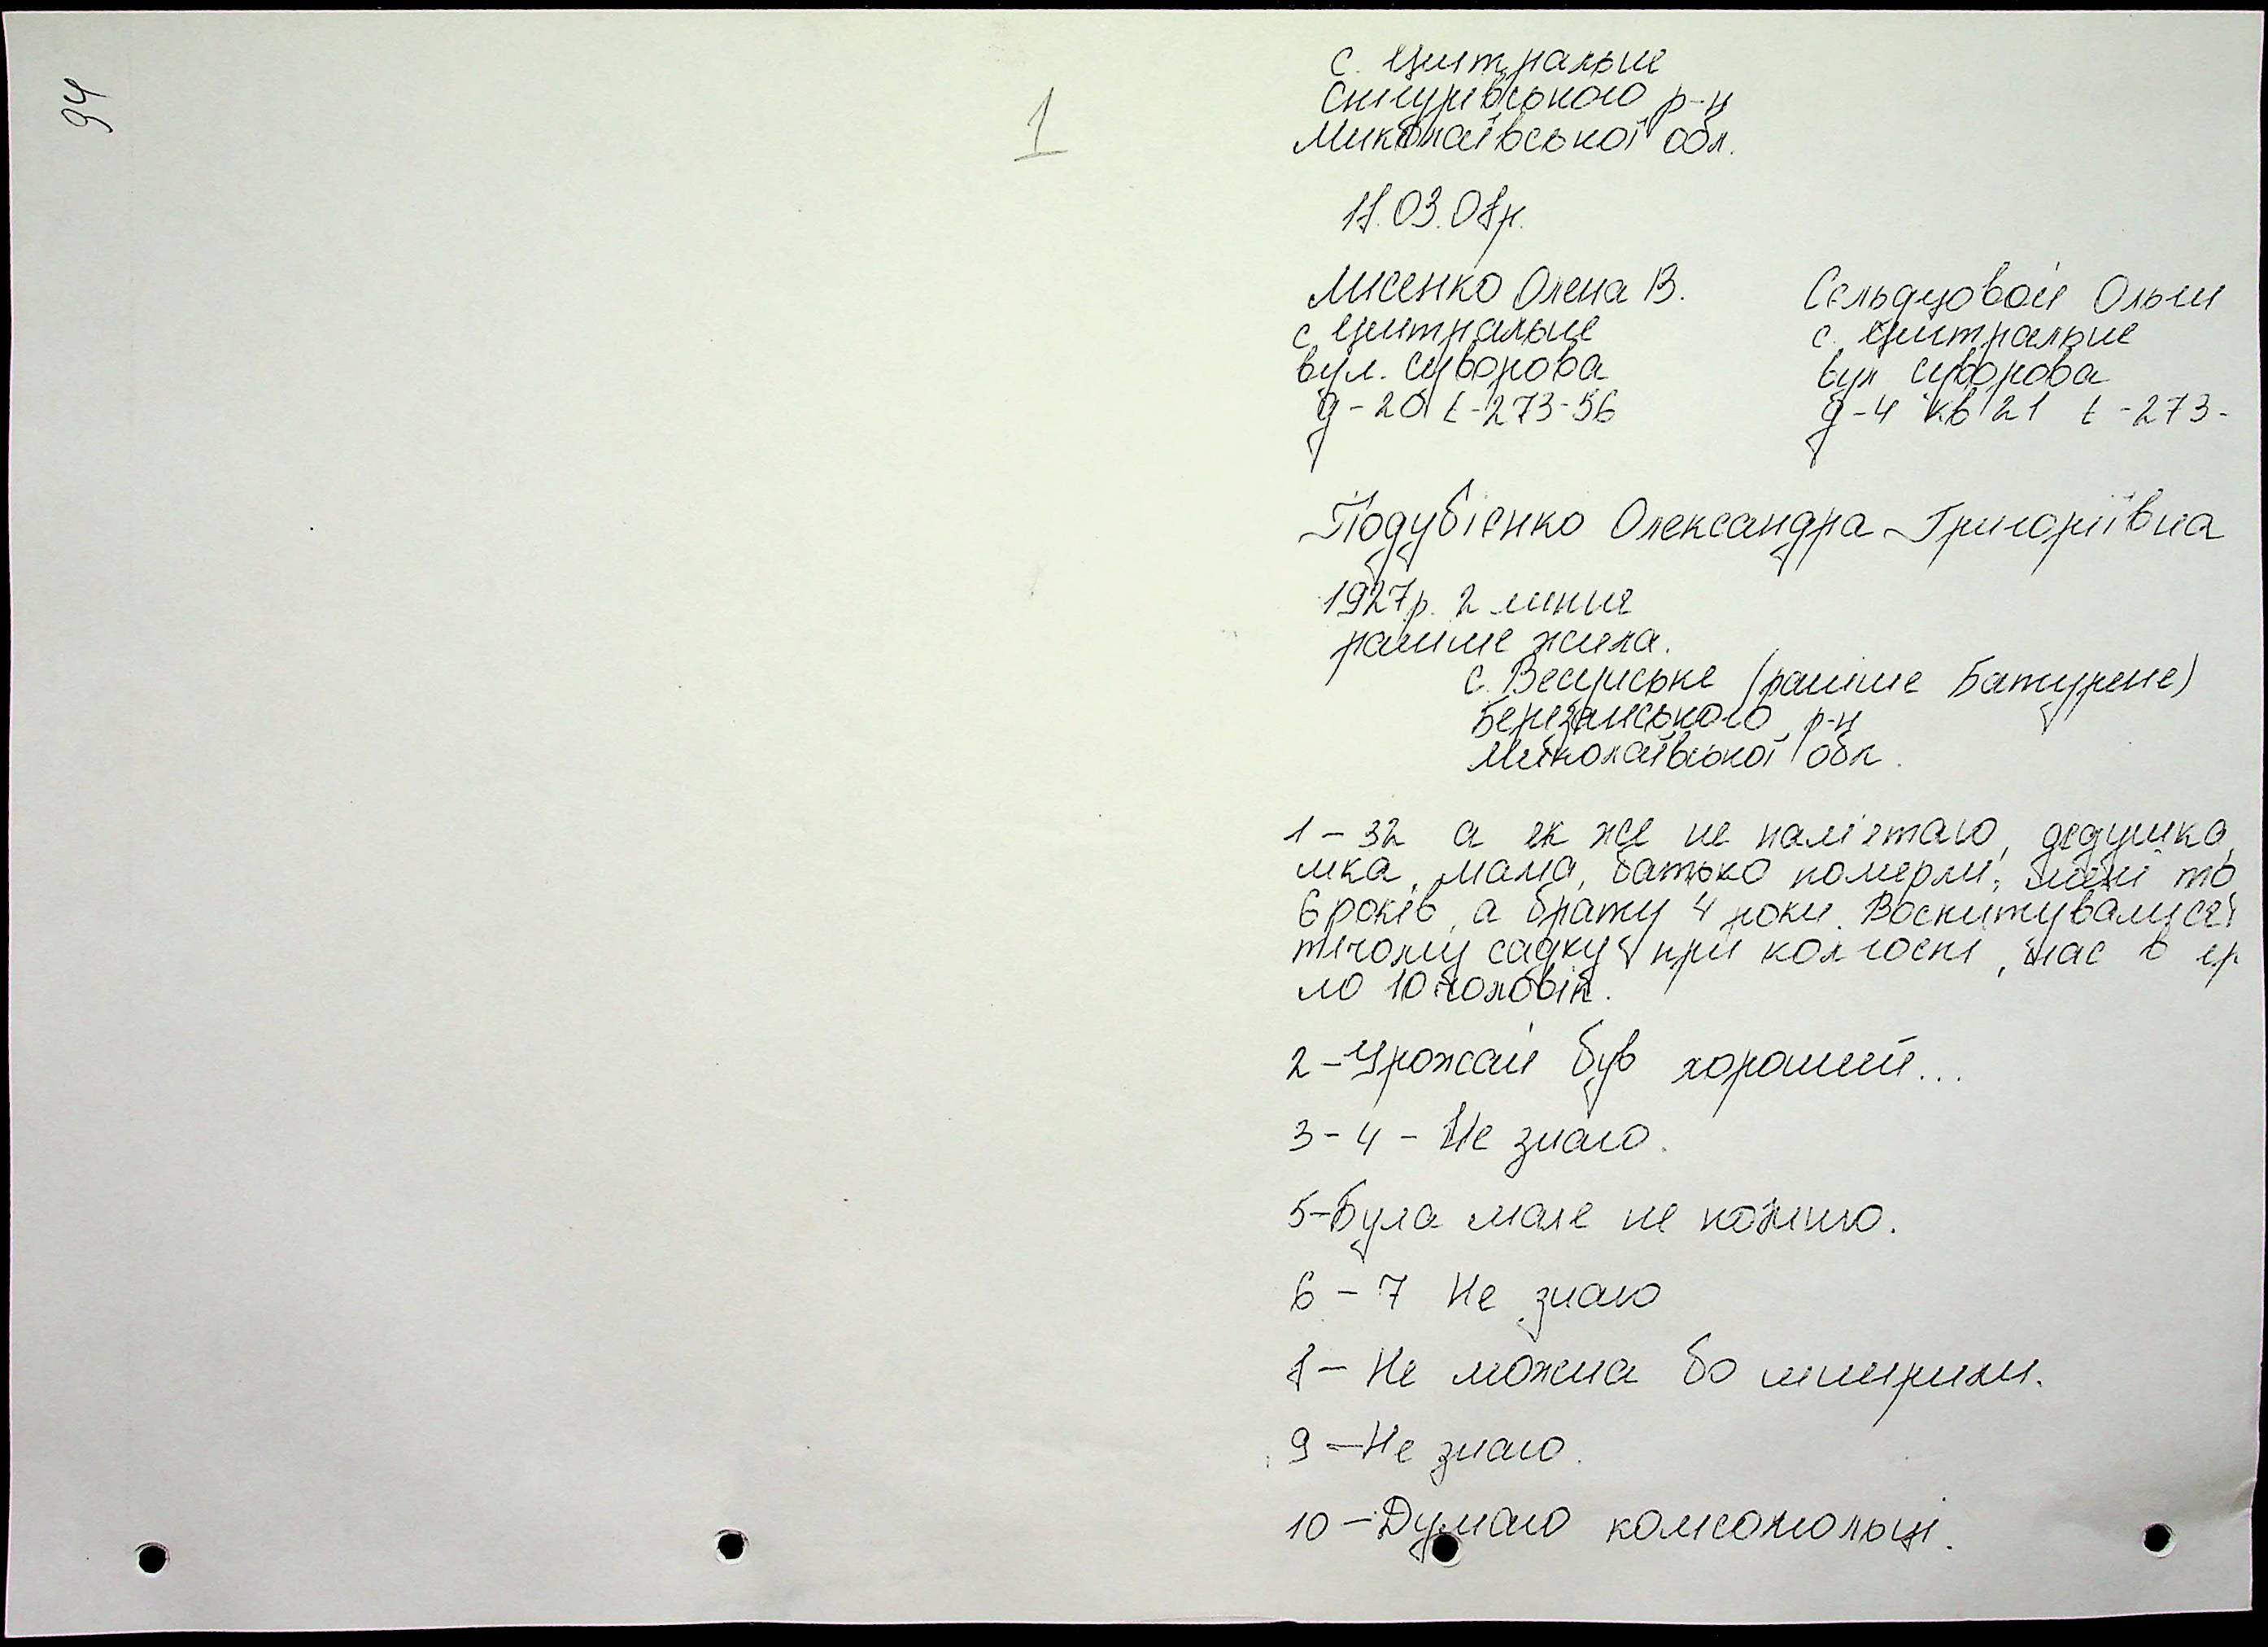 94
1
с. Центральне
Снігурівського р-н
Миколаївської обл.
18.03.08р.
Лисенко Олена В.
с Центральне
вул. Суворова
д-20 t-273-56
Сєльдцовой Ольги
с. Центральне
вул Суворова
д-4 кв 21 t-273-
Подубієнко Олександра Григоріївна
1927р. 2 липня
раніше жила.
с. (раніше Батурене)
Березанського р-н
Миколаївської обл.
1 - 32 а як же не пам'ятаю, дєдушка,
мка, мама, батько померли, мені то
6 років, а брату 4 роки. Воспитувалися
тячому садку при колгоспі, нас б
ло 10 чоловік.
2 - Урожай був хороший...
3 - 4 - Не знаю.
5 - Була мала не помню.
6 - 7 Не знаю
8 - Не можна бо
9 - Не знаю.
10 - Думаю комсомольці.